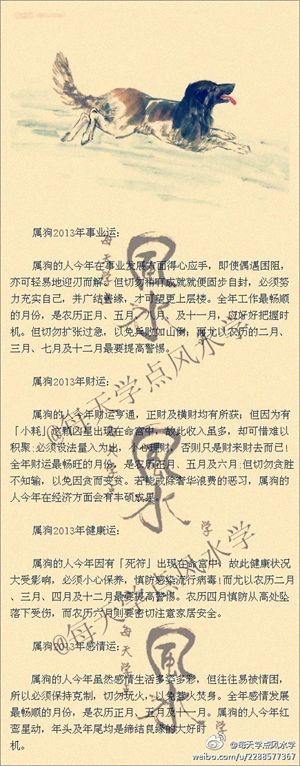 属狗2013年事业运:
属狗的人今年在事业发展方面得心应手,即使偶遇困阻,
亦可轻易地迎刃而解。但切勿稍有成就就便固步自封,必须
努力充实自己,并广结善缘,才可望更上层楼。全年工作最畅顺
的月份,是农历正月、五月、八月、及十一月,好好把握时
机。但切勿扩张过急,以免兵败如山倒;而尤以农历的二月、
三月、七月及十二月最要提高警惕。
属狗2013年财运:
属狗的人今年财运亨通,正财及横财均有所获;但因为有
「小耗」这颗凶星出现在命宫中,故此收入虽多,却可惜难以
积聚;必须设法量入为出,小心理财,否则只是财来财去而已!
全年财运最畅旺的月份,是农历正月、五月及六月;但切勿贪胜
不知输,以免因贪而变贫。若能戒除奢华浪费的恶习,属狗的
人今年在经济方面会有丰硕成果。
属狗2013年健康运:
属狗的人今年因有「死符」出现在命宫中,故此健康状况
大受影响,必须小心保养,慎防感染流行病毒!而尤以农历二月
、三月、四月及十二月最要提高警惕。农历四月慎防从高处坠
落下受伤,而农历六月则要密切注意家居安全。
属狗2013年感情运:
属狗的人今年虽然感情生活多姿多彩,但往往易被情困,
所以必须保持克制,切勿玩火,以免惹火焚身。全年感情发展
最畅顺的月份,是农历正月、五月及十一月。属狗的人今年红
鸾星动,年头及年尾均是缔结良缘的大好时
机。
风水
@每天学点风水学
@每天学点风水学
weibo.com/u/2288577367